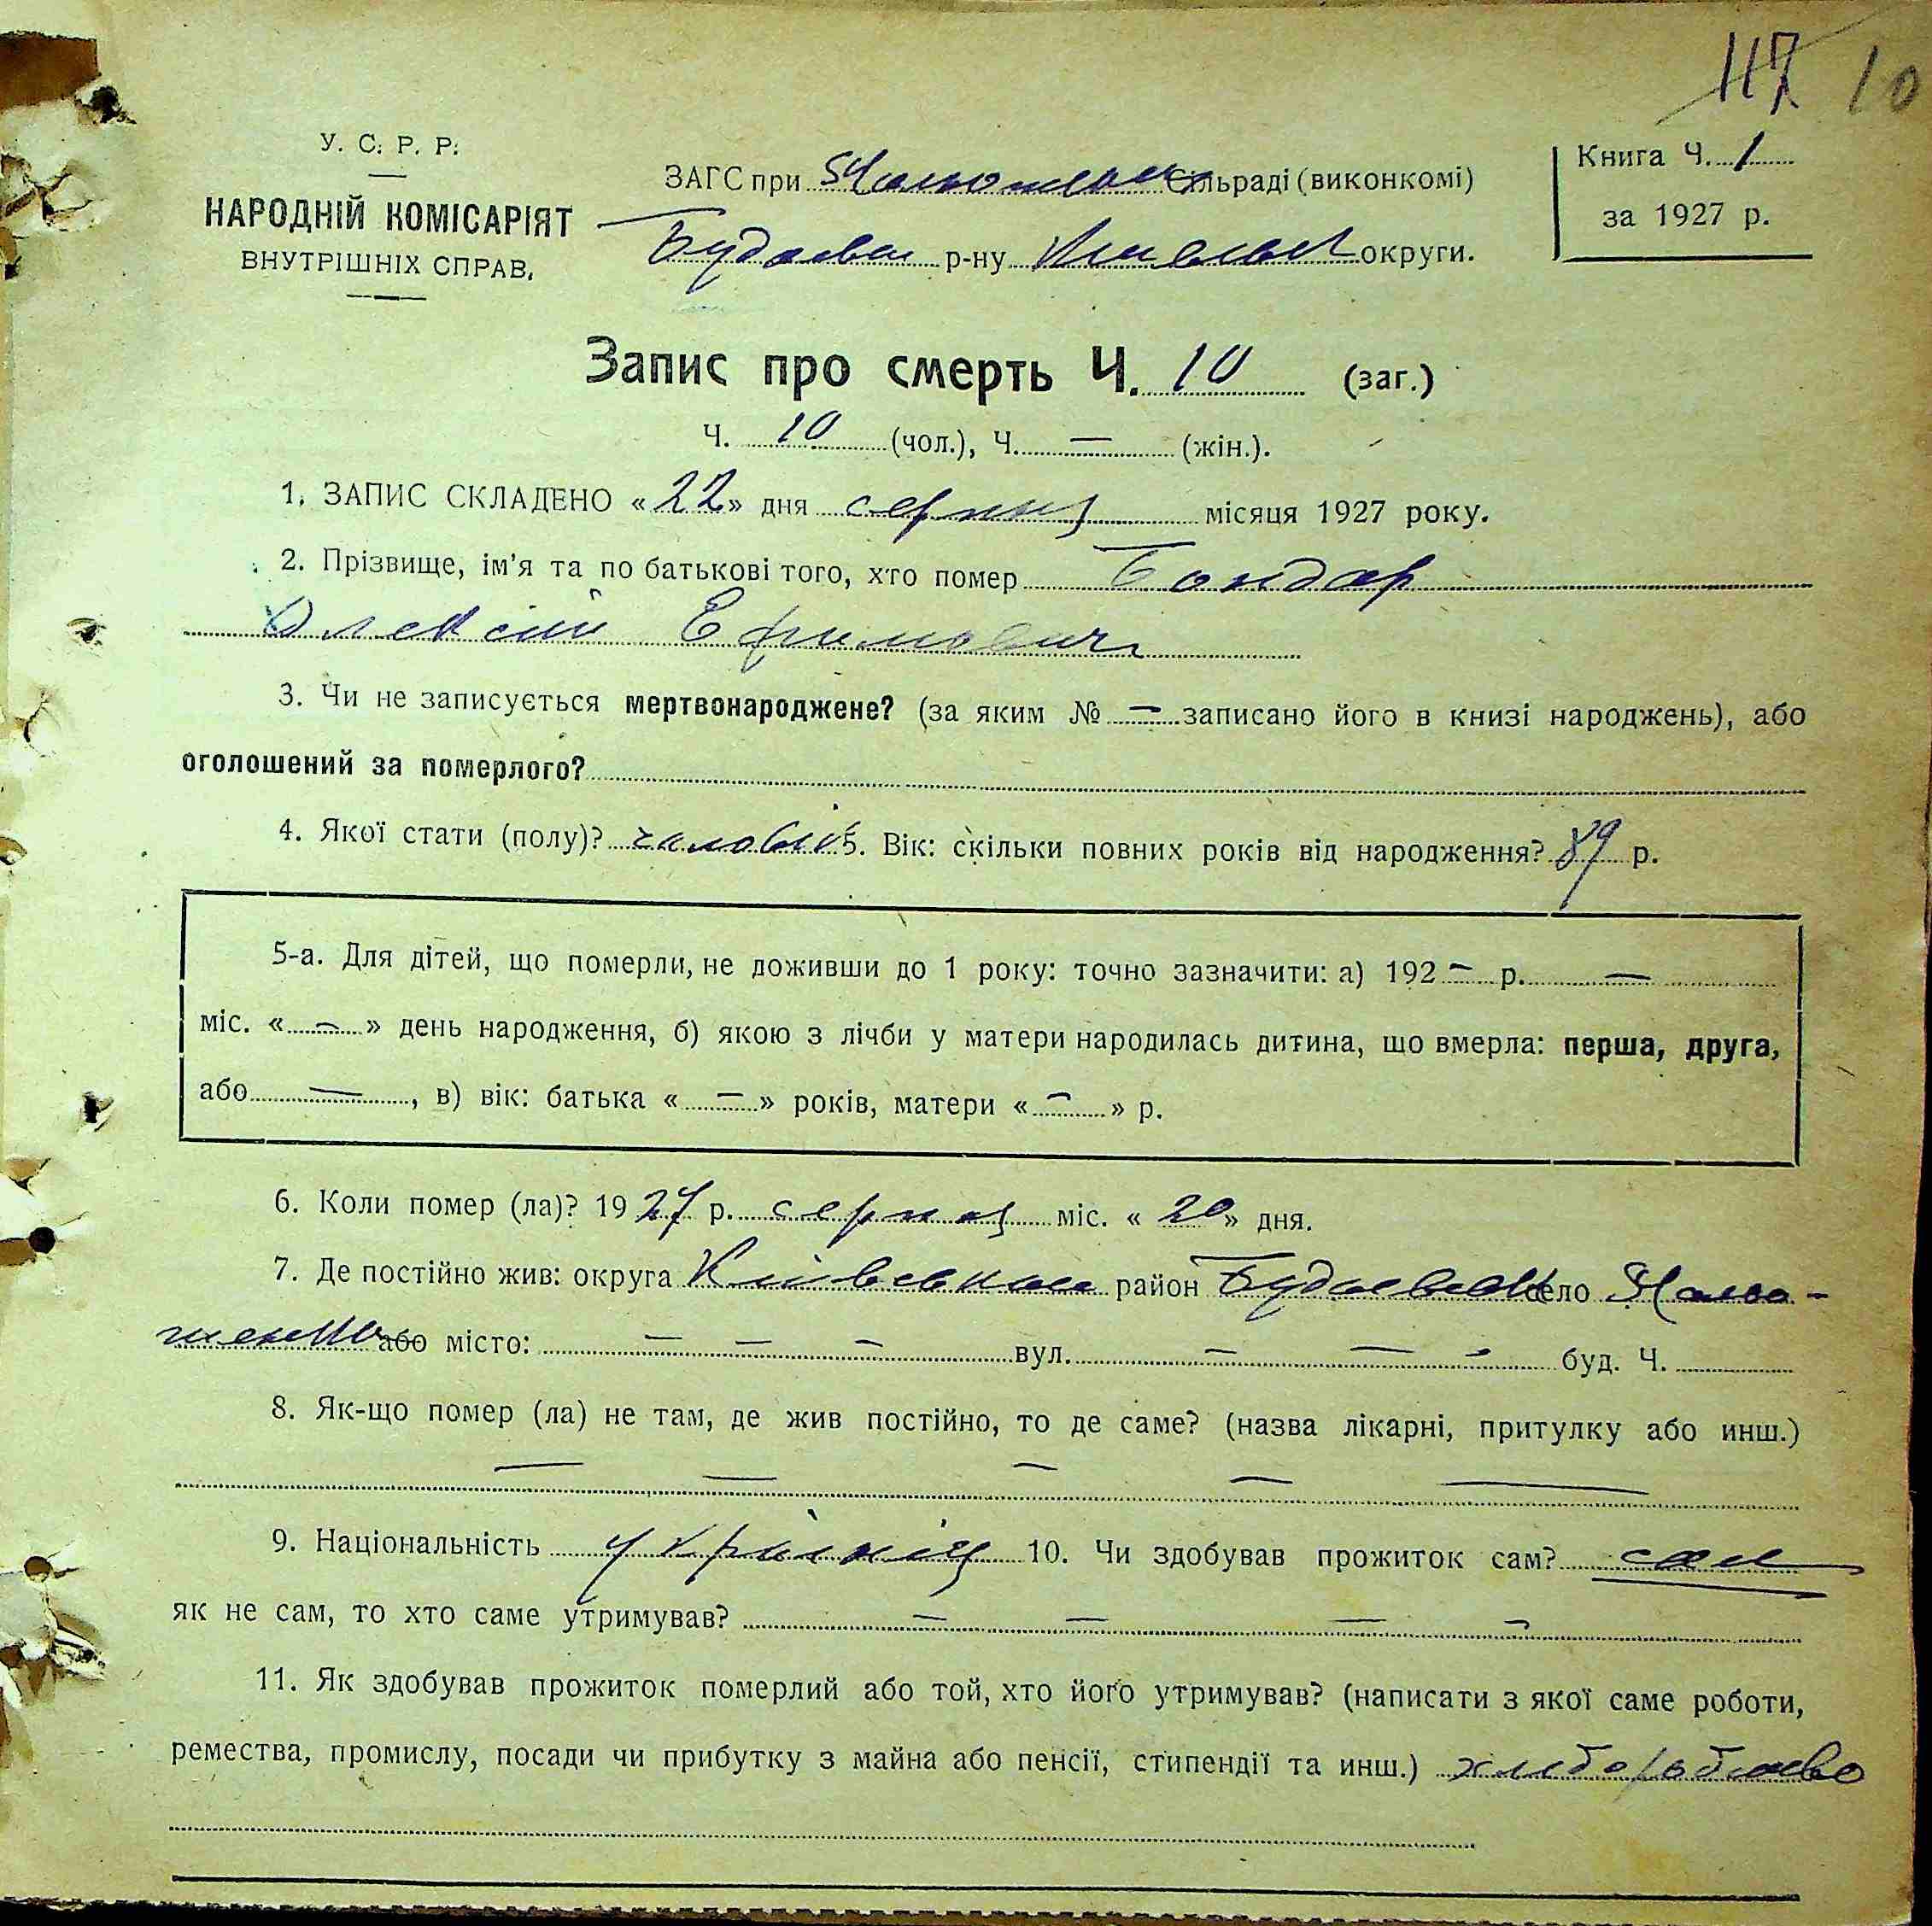 117 10
У. С. Р. Р.
НАРОДНІЙ КОМІСАРІЯТ
ВНУТРІШНІХ СПРАВ.
ЗАГС при сільраді (виконкомі)
Будаєвск р-ну Київськ округи.
Книга Ч. 1
за 1927 р.
Запис про смерть Ч. 10 (заг.)
Ч. 10 (чол.), Ч. — (жін.).
1. ЗАПИС СКЛАДЕНО «22» дня серпня місяця 1927 року.
2. Прізвище, ім'я та по батькові того, хто помер Бондар
Олексій Ефимович
3. Чи не записується мертвонароджене? (за яким № — записано його в книзі народжень), або
оголошений за померлого?
4. Якої стати (полу)? чоловіч 5. Вік: скільки повних років від народження? 89 р.
5-а. Для дітей, що померли, не доживши до 1 року: точно зазначити: а) 192 — р. —
міс. « — » день народження, б) якою з лічби у матери народилась дитина, що вмерла: перша, друга,
або —, в) вік: батька « — » років, матери « — » р.
6. Коли помер (ла)? 1927 р. серпня міс. «20» дня.
7. Де постійно жив: округа Київська район Будаєвськ село
або місто: — — — вул. — — — буд. Ч.
8. Як-що помер (ла) не там, де жив постійно, то де саме? (назва лікарні, притулку або инш.)
— — — — —
9. Національність україніц 10. Чи здобував прожиток сам? сам
як не сам, то хто саме утримував? — — — —
11. Як здобував прожиток померлий або той, хто його утримував? (написати з якої саме роботи,
ремества, промислу, посади чи прибутку з майна або пенсії, стипендії та инш.) хліборобство